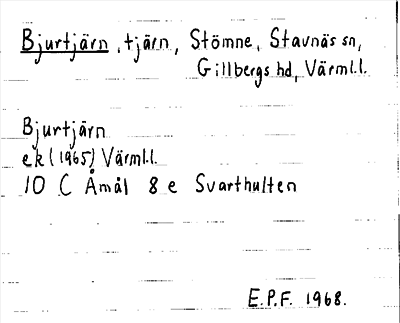 Bjurtjärn, tjärn, Stömne, Stavnäs sn,
Gillbergs hd, Värml.l.
Bjurtjärn
ek (1965) Värml.l.
10 C Åmål 8 e Svarthulten
E.P.F. 1968.